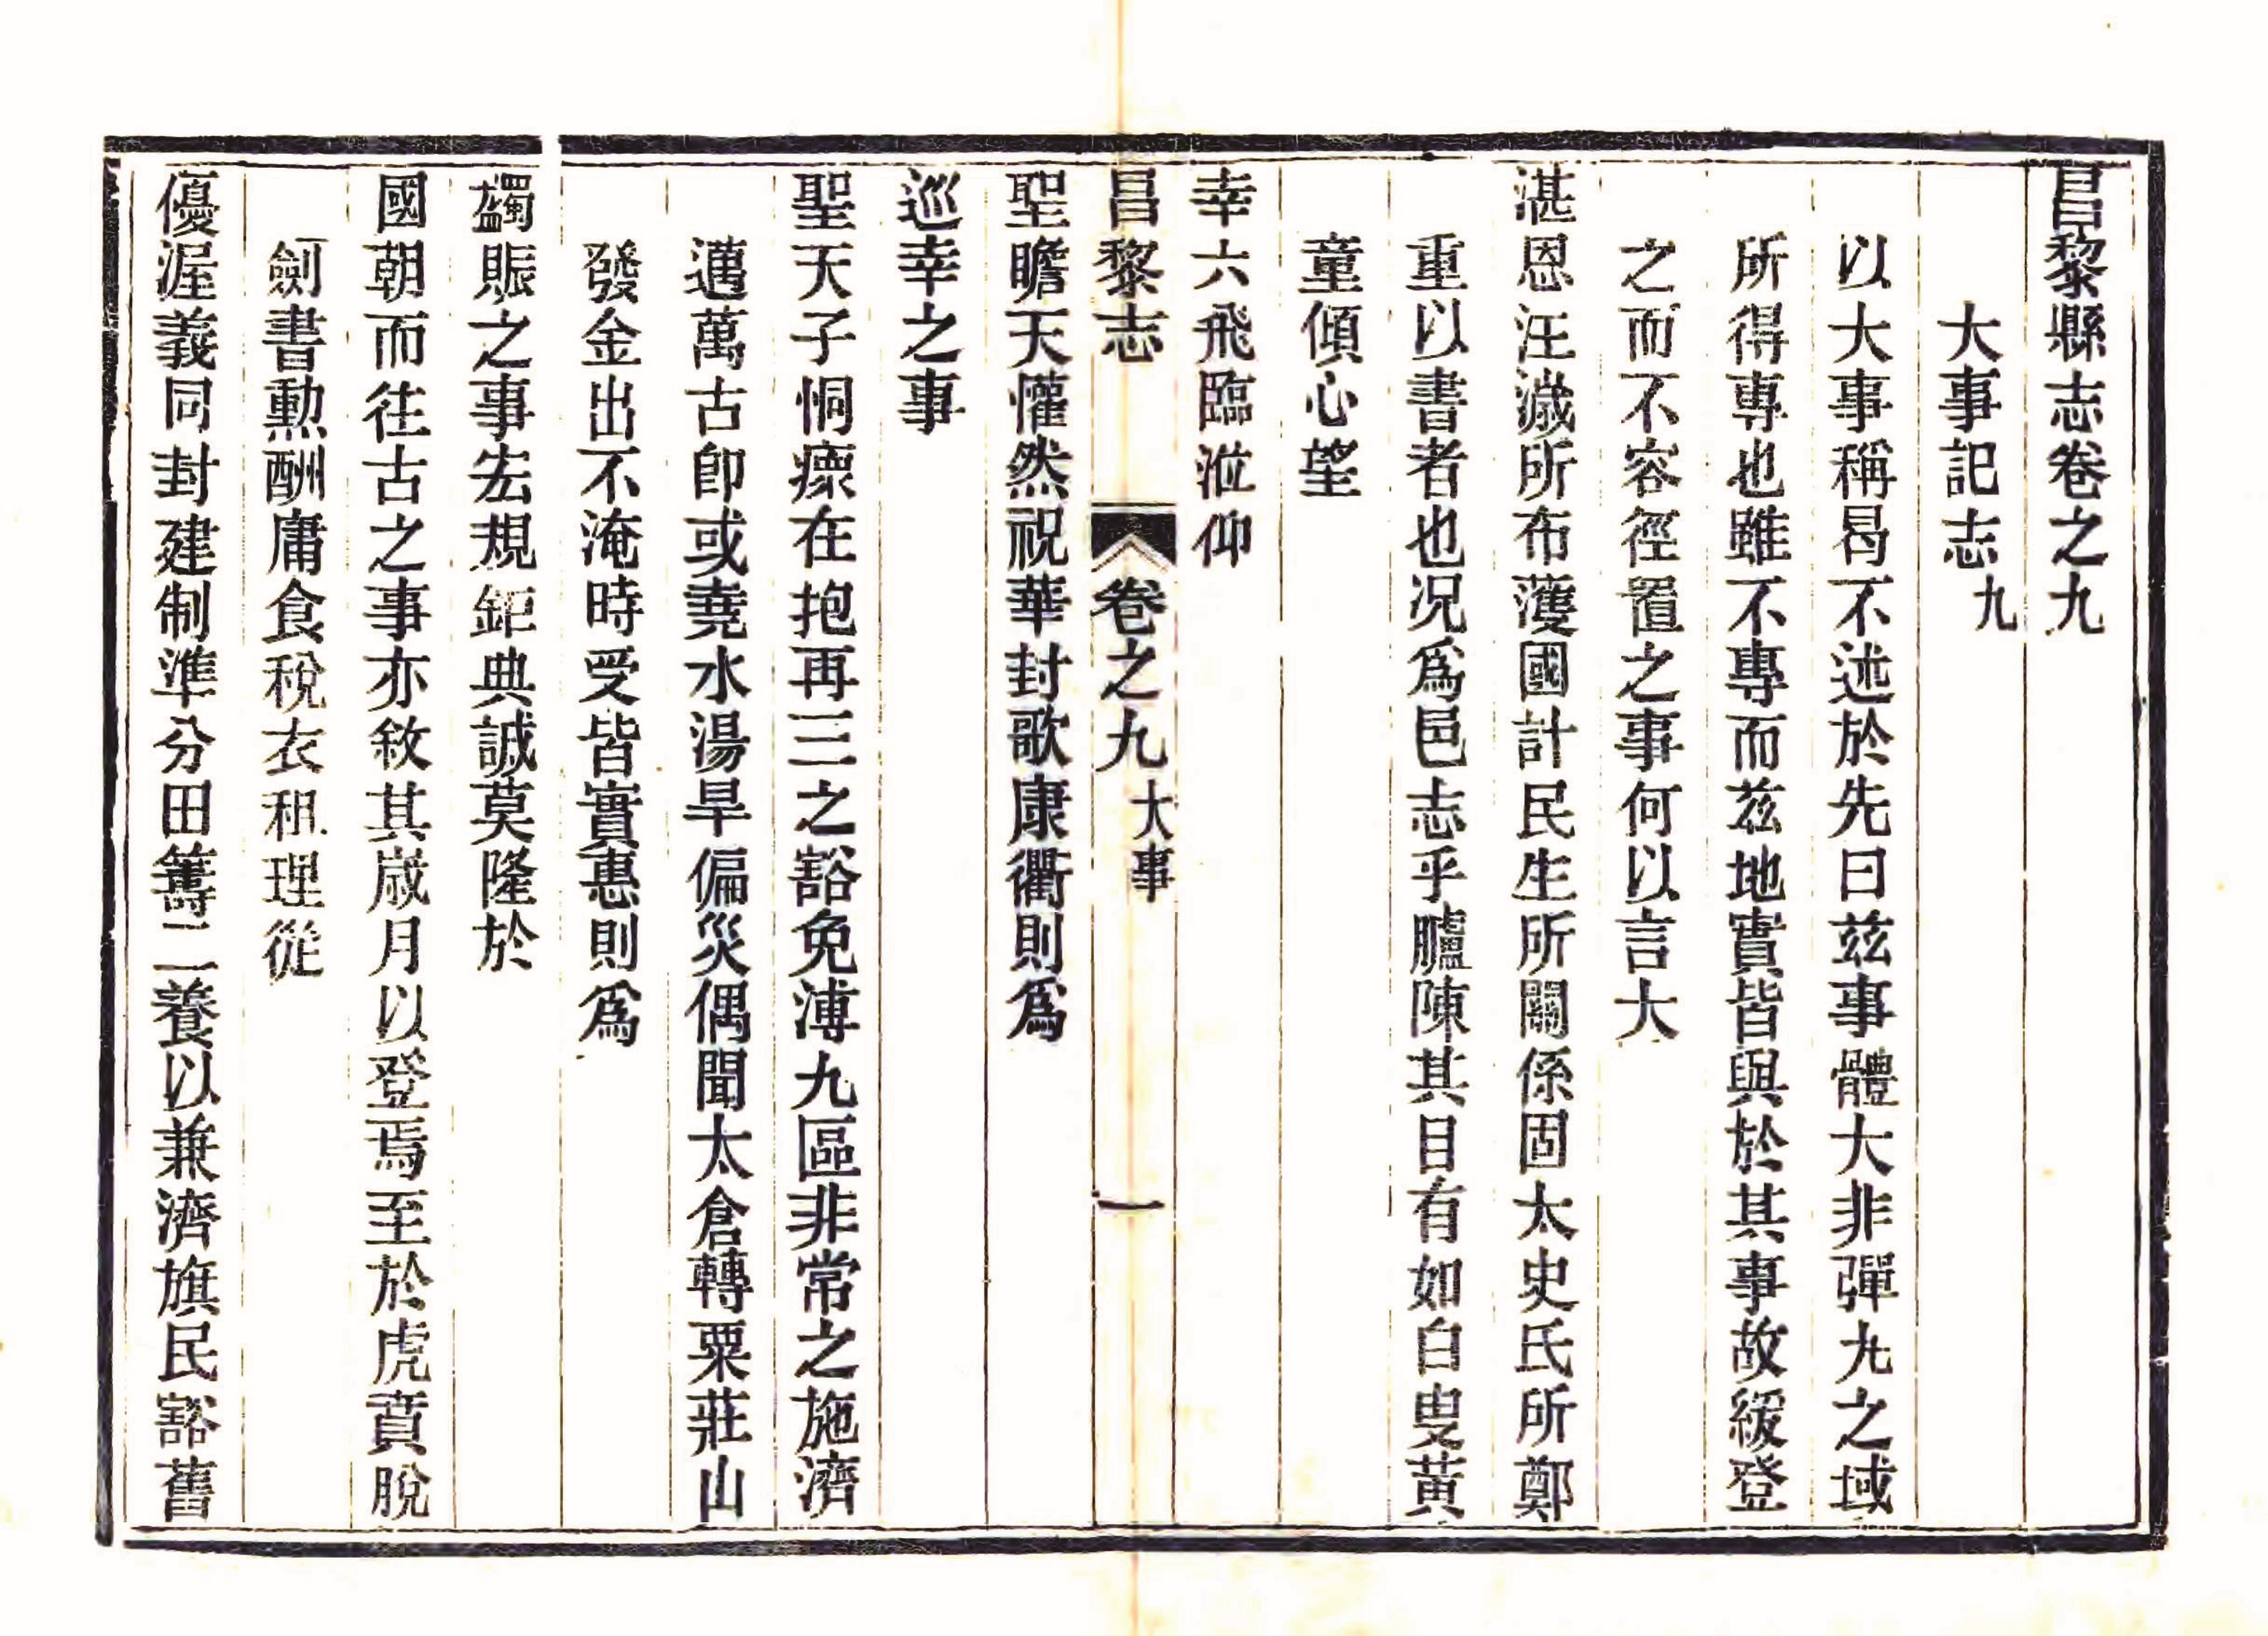 昌黎縣志卷之九
大事記志九
以大事稱曷不述於先曰兹事體大非彈丸之域
所得專也雖不專而兹地實皆與於其事故緩登
之而不容徑置之事何以言大
湛恩汪濊所布濩國計民生所關係固太史氏所鄭
重以書者也况爲邑志乎臚陳其目有如白叟黃
童傾心望
幸六飛臨涖仰
昌黎志 卷之九 大事 一
聖瞻天懽然祝華封歌康衢則爲
巡幸之事
聖天子恫瘝在抱再三之豁免溥九區非常之施濟
邁萬古卽或堯水湯旱偏災偶聞太倉轉粟莊山
發金出不淹時受皆實惠則爲
蠲賑之事宏規鉅典誠莫隆於
國朝而往古之事亦敘其歲月以登焉至於虎賁脫
劍書勲酬庸食稅衣租理從
優渥義同封建制準分田籌二養以兼濟旗民豁舊